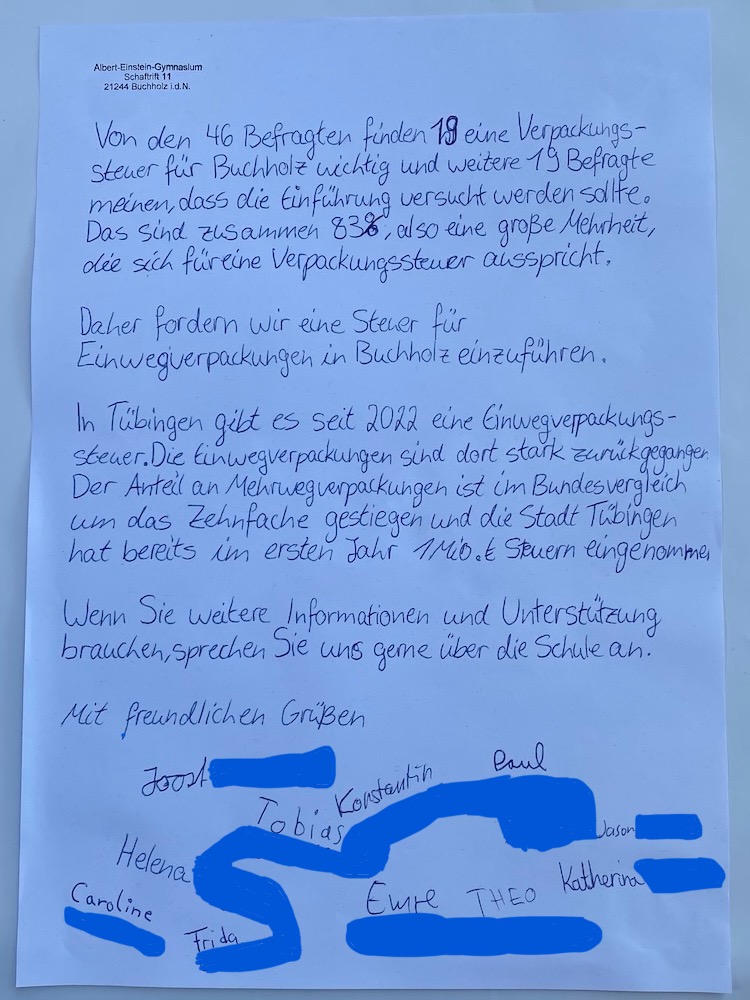 Albert-Einstein-Gymnasium
Schaftrift 11
21244 Buchholz i.d.N.
Von den 46 Befragten finden 19 eine Verpackungs-
steuer für Buchholz wichtig und weitere 19 Befragte
meinen, dass die Einführung versucht werden sollte.
Das sind zusammen 83%, also eine große Mehrheit,
die sich für eine Verpackungssteuer ausspricht.
Daher fordern wir eine Steuer für
Einwegverpackungen in Buchholz einzuführen.
In Tübingen gibt es seit 2022 eine Einwegverpackungs-
steuer. Die Einwegverpackungen sind dort stark zurückgegangen
Der Anteil an Mehrwegverpackungen ist im Bundesvergleich
um das Zehnfache gestiegen und die Stadt Tübingen
hat bereits im ersten Jahr 1 Mio. € Steuern eingenommen
Wenn Sie weitere Informationen und Unterstützung
brauchen, sprechen Sie uns gerne über die Schule an.
Mit freundlichen Grüßen
Joost
Paul
Konstantin
Tobias
Jason
Helena
Katherina
Caroline
Emre
THEO
Frida